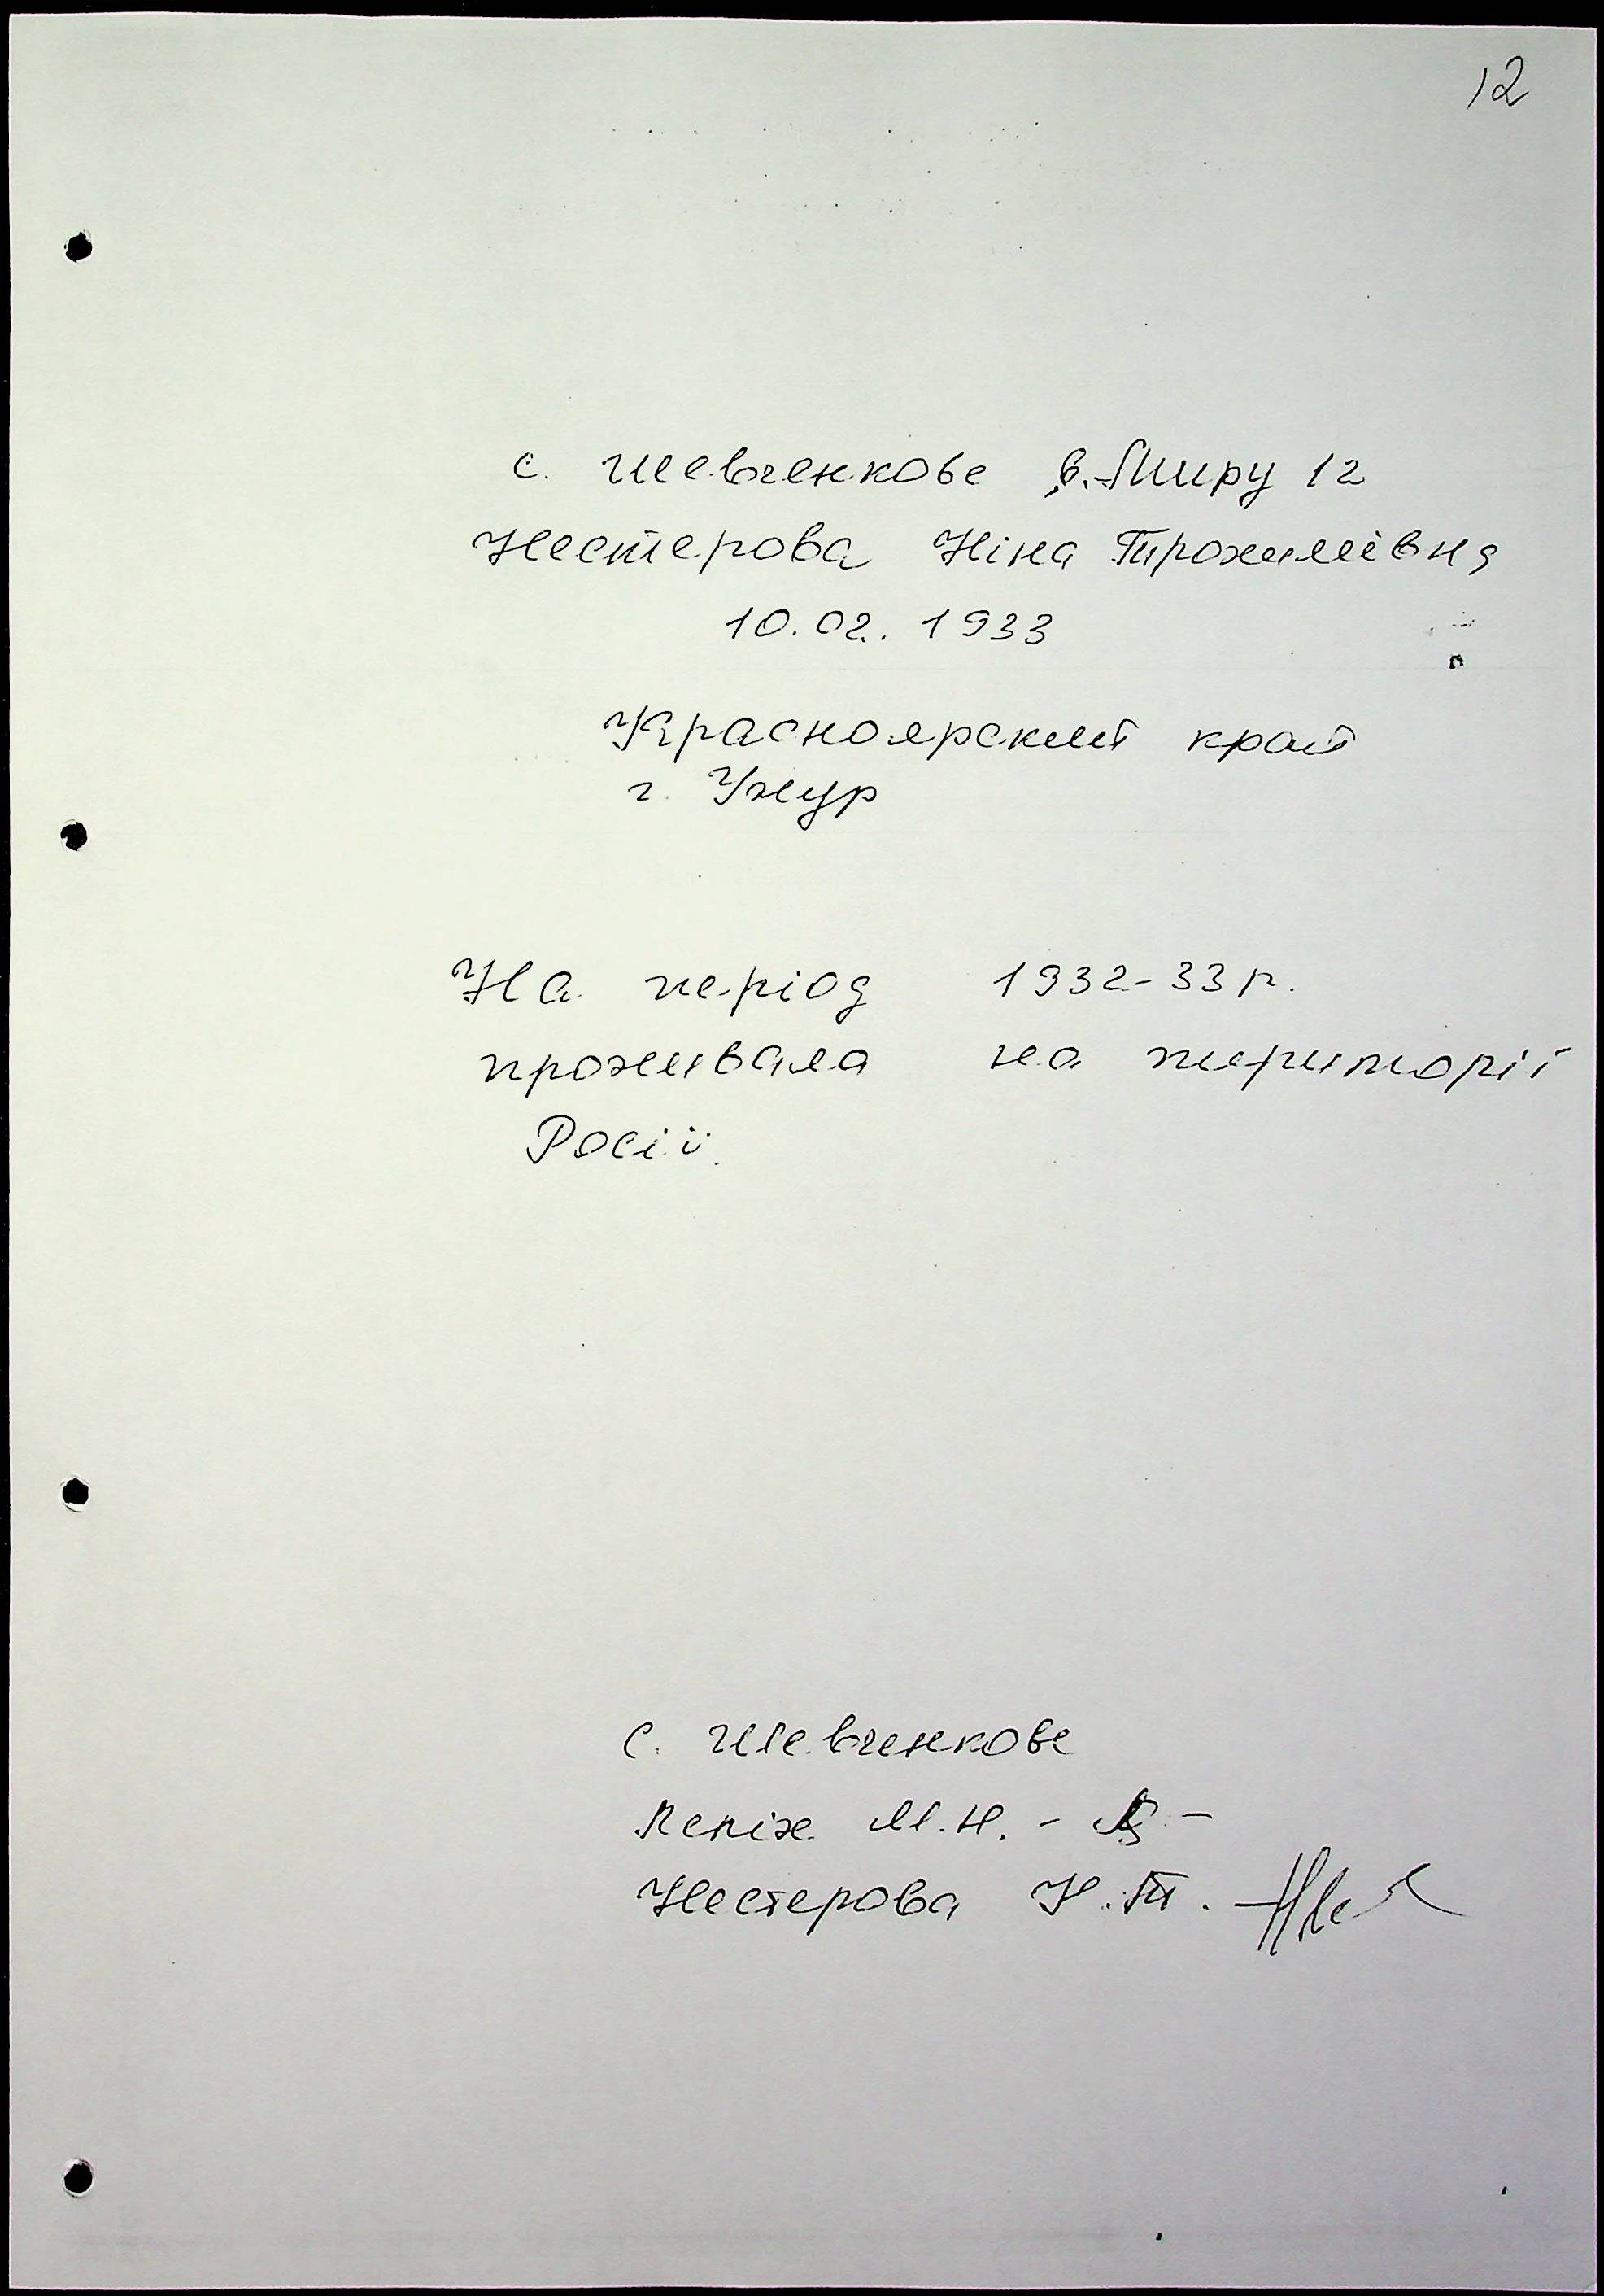 12
с. Шевченкове в. Миру 12
Нестерова Ніна Трохимівна
10.02.1933
Красноярский край
г. Ужур
На період 1932-33 р.
проживала на территорії
Росії.
с. Шевченкове
М.Н. -
Нестерова Н.Т.